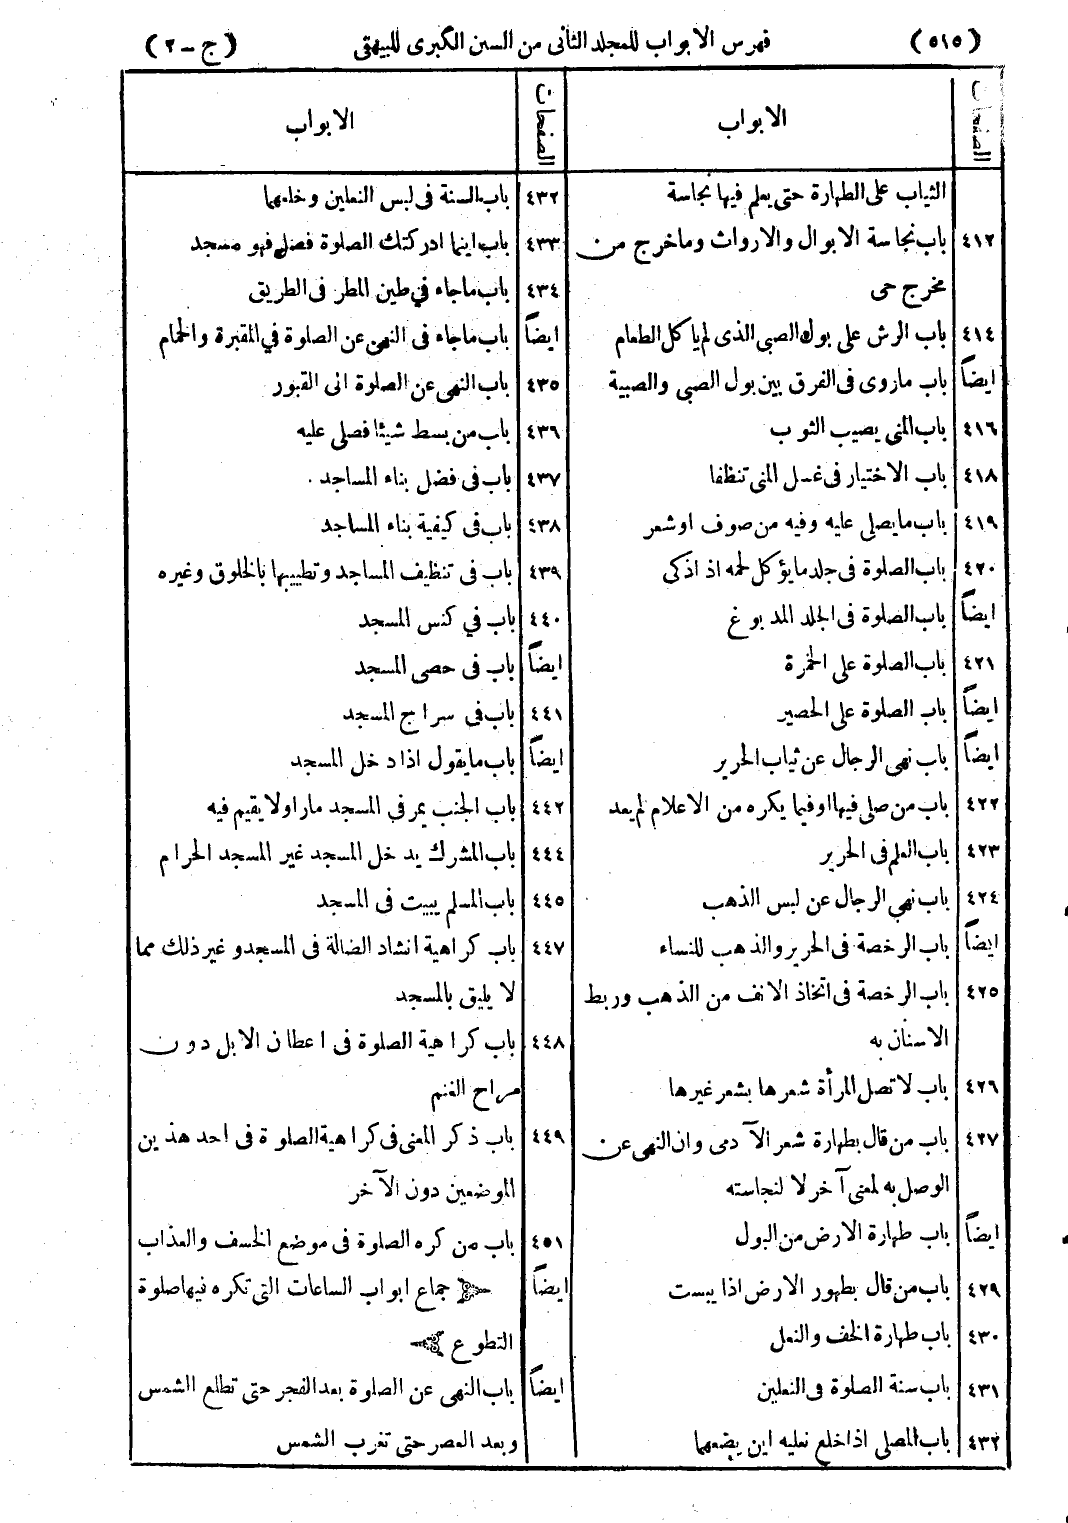 (٥١٥) فهرس الابواب للمجلد الثانى من السنن الكبرى للبيهقى (ج-٢)
الصفحات الابواب
الثياب على الطهارة حتى يعلم فيها نجاسة
٤١٢ باب نجاسة الابوال والارواث وماخرج من
مخرج حى
٤١٤ باب الرش على بول الصبى الذى لم ياكل الطعام
ايضاً باب ماروى فى الفرق بين بول الصبى والصبية
٤١٦ باب المنى يصيب الثوب
٤١٨ باب الاختيار فى غسل المنى تنظفا
٤١٩ باب مايصلى عليه وفيه من صوف اوشعر
٤٢٠ باب الصلوة فى جلد مايؤكل لحمه اذ اذكى
ايضاً باب الصلوة فى الجلد المدبوغ
٤٢١ باب الصلوة على الخمرة
ايضاً باب الصلوة على الحصير
ايضاً باب نهى الرجال عن ثياب الحرير
٤٢٢ باب من صلى فيها اوفيما يكره من الاعلام لم يعد
٤٢٣ باب العلم فى الحرير
٤٢٤ باب نهي الرجال عن لبس الذهب
ايضاً باب الرخصة فى الحرير والذهب للنساء
٤٢٥ باب الرخصة فى اتخاذ الانف من الذهب وربط
الاسنان به
٤٢٦ باب لاتصل المرأة شعرها بشعر غيرها
٤٢٧ باب من قال بطهارة شعر الآدمى وان النهى عن
الوصل به لمعنى آخر لا لنجاسته
ايضاً باب طهارة الارض من البول
٤٢٩ باب من قال بطهور الارض اذا يبست
٤٣٠ باب طهارة الخف والنعل
٤٣١ باب سنة الصلوة فى النعلين
٤٣٢ باب المصلى اذاخلع نعليه اين يضعهما
الصفحات الابواب
٤٣٢ باب السنة فى لبس النعلين وخلعهما
٤٣٣ باب اينما ادركتك الصلوة فصل فهو مسجد
٤٣٤ باب ماجاء في طين المطر فى الطريق
ايضاً باب ماجاء فى النهى عن الصلوة في المقبرة والحمام
٤٣٥ باب النهى عن الصلوة الى القبور
٤٣٦ باب من بسط شيئا فصلى عليه
٤٣٧ باب فى فضل بناء المساجد
٤٣٨ باب فى كيفية بناء المساجد
٤٣٩ باب فى تنظيف المساجد وتطييبها بالخلوق وغيره
٤٤٠ باب في كنس المسجد
ايضاً باب فى حصى المسجد
٤٤١ باب فى سراج المسجد
ايضاً باب مايقول اذا دخل المسجد
٤٤٢ باب الجنب يمر في المسجد مارا ولا يقيم فيه
٤٤٤ باب المشرك يدخل المسجد غير المسجد الحرام
٤٤٥ باب المسلم يبيت فى المسجد
٤٤٧ باب كراهية انشاد الضالة فى المسجد و غير ذلك مما
لا يليق بالمسجد
٤٤٨ باب كراهية الصلوة فى اعطان الابل دون
مراح الغنم
٤٤٩ باب ذكر المعنى فى كراهية الصلوة فى احد هذين
الموضعين دون الآخر
٤٥١ باب من كره الصلوة فى موضع الخسف والعذاب
ايضاً جماع ابواب الساعات التى تكره فيها صلوة
التطوع
ايضاً باب النهى عن الصلوة بعد الفجر حتى تطلع الشمس
وبعد العصر حتى تغرب الشمس